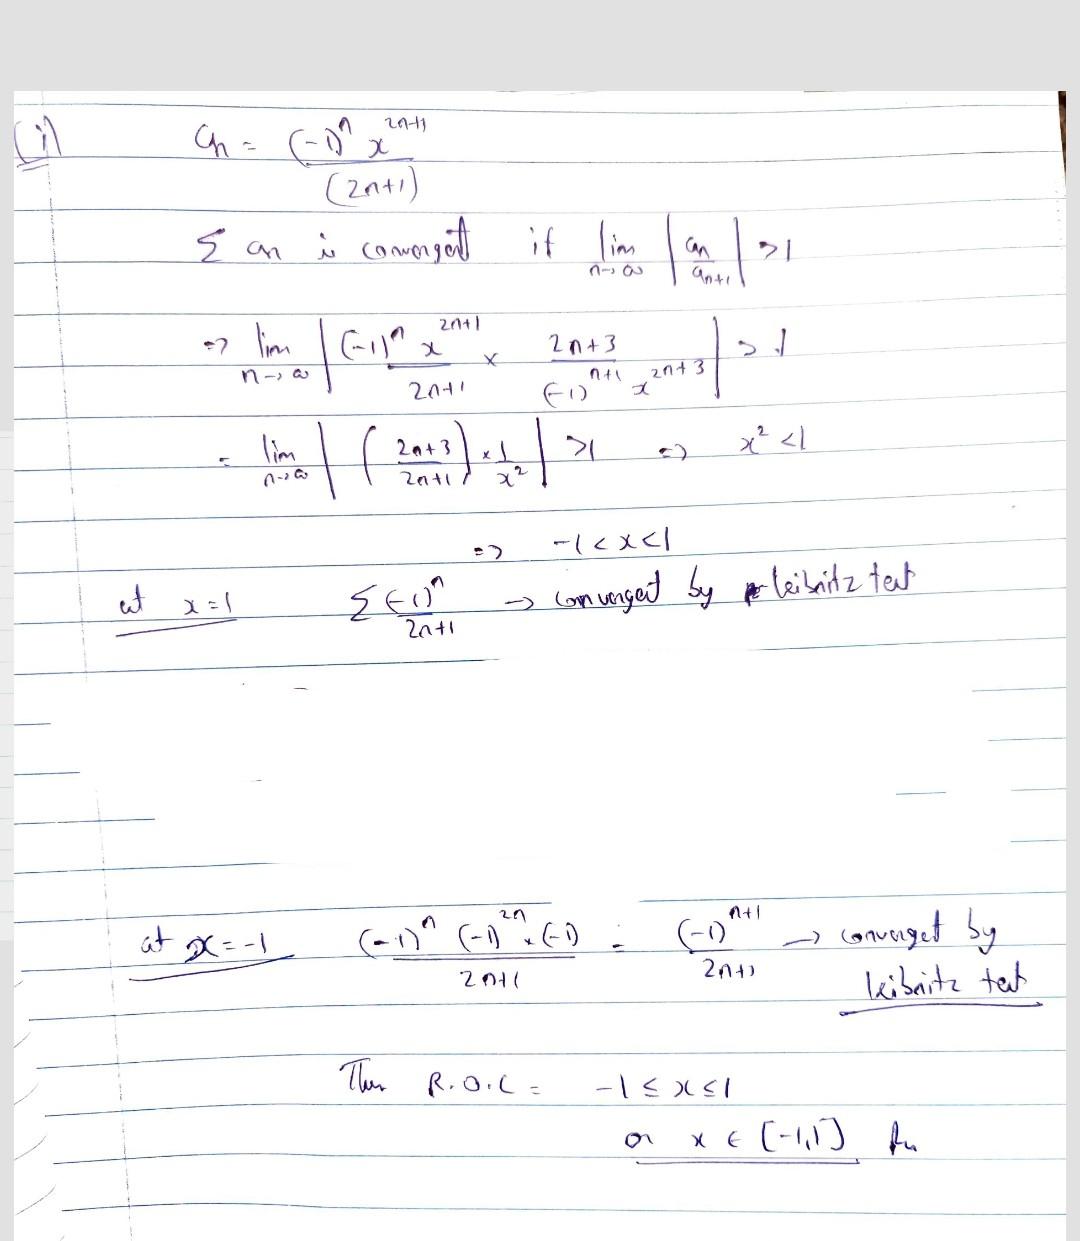 (i) an = (-1)^n x^(2n+1) / (2n+1)
Σ an is convergent if lim n→∞ | an / an+1 | > 1
=> lim n→∞ | (-1)^n x^(2n+1) / 2n+1 × 2n+3 / (-1)^(n+1) x^(2n+3) | > 1
= lim n→∞ | ( 2n+3 / 2n+1 ) × 1 / x² | > 1 => x² < 1
=> -1 < x < 1
at x = 1 Σ (-1)^n / 2n+1 → convergent by leibnitz test
at x = -1 (-1)^n (-1)^2n × (-1) / 2n+1 = (-1)^(n+1) / 2n+1 → convergent by
leibnitz test
Then R.O.C = -1 ≤ x ≤ 1
or x ∈ [-1,1]